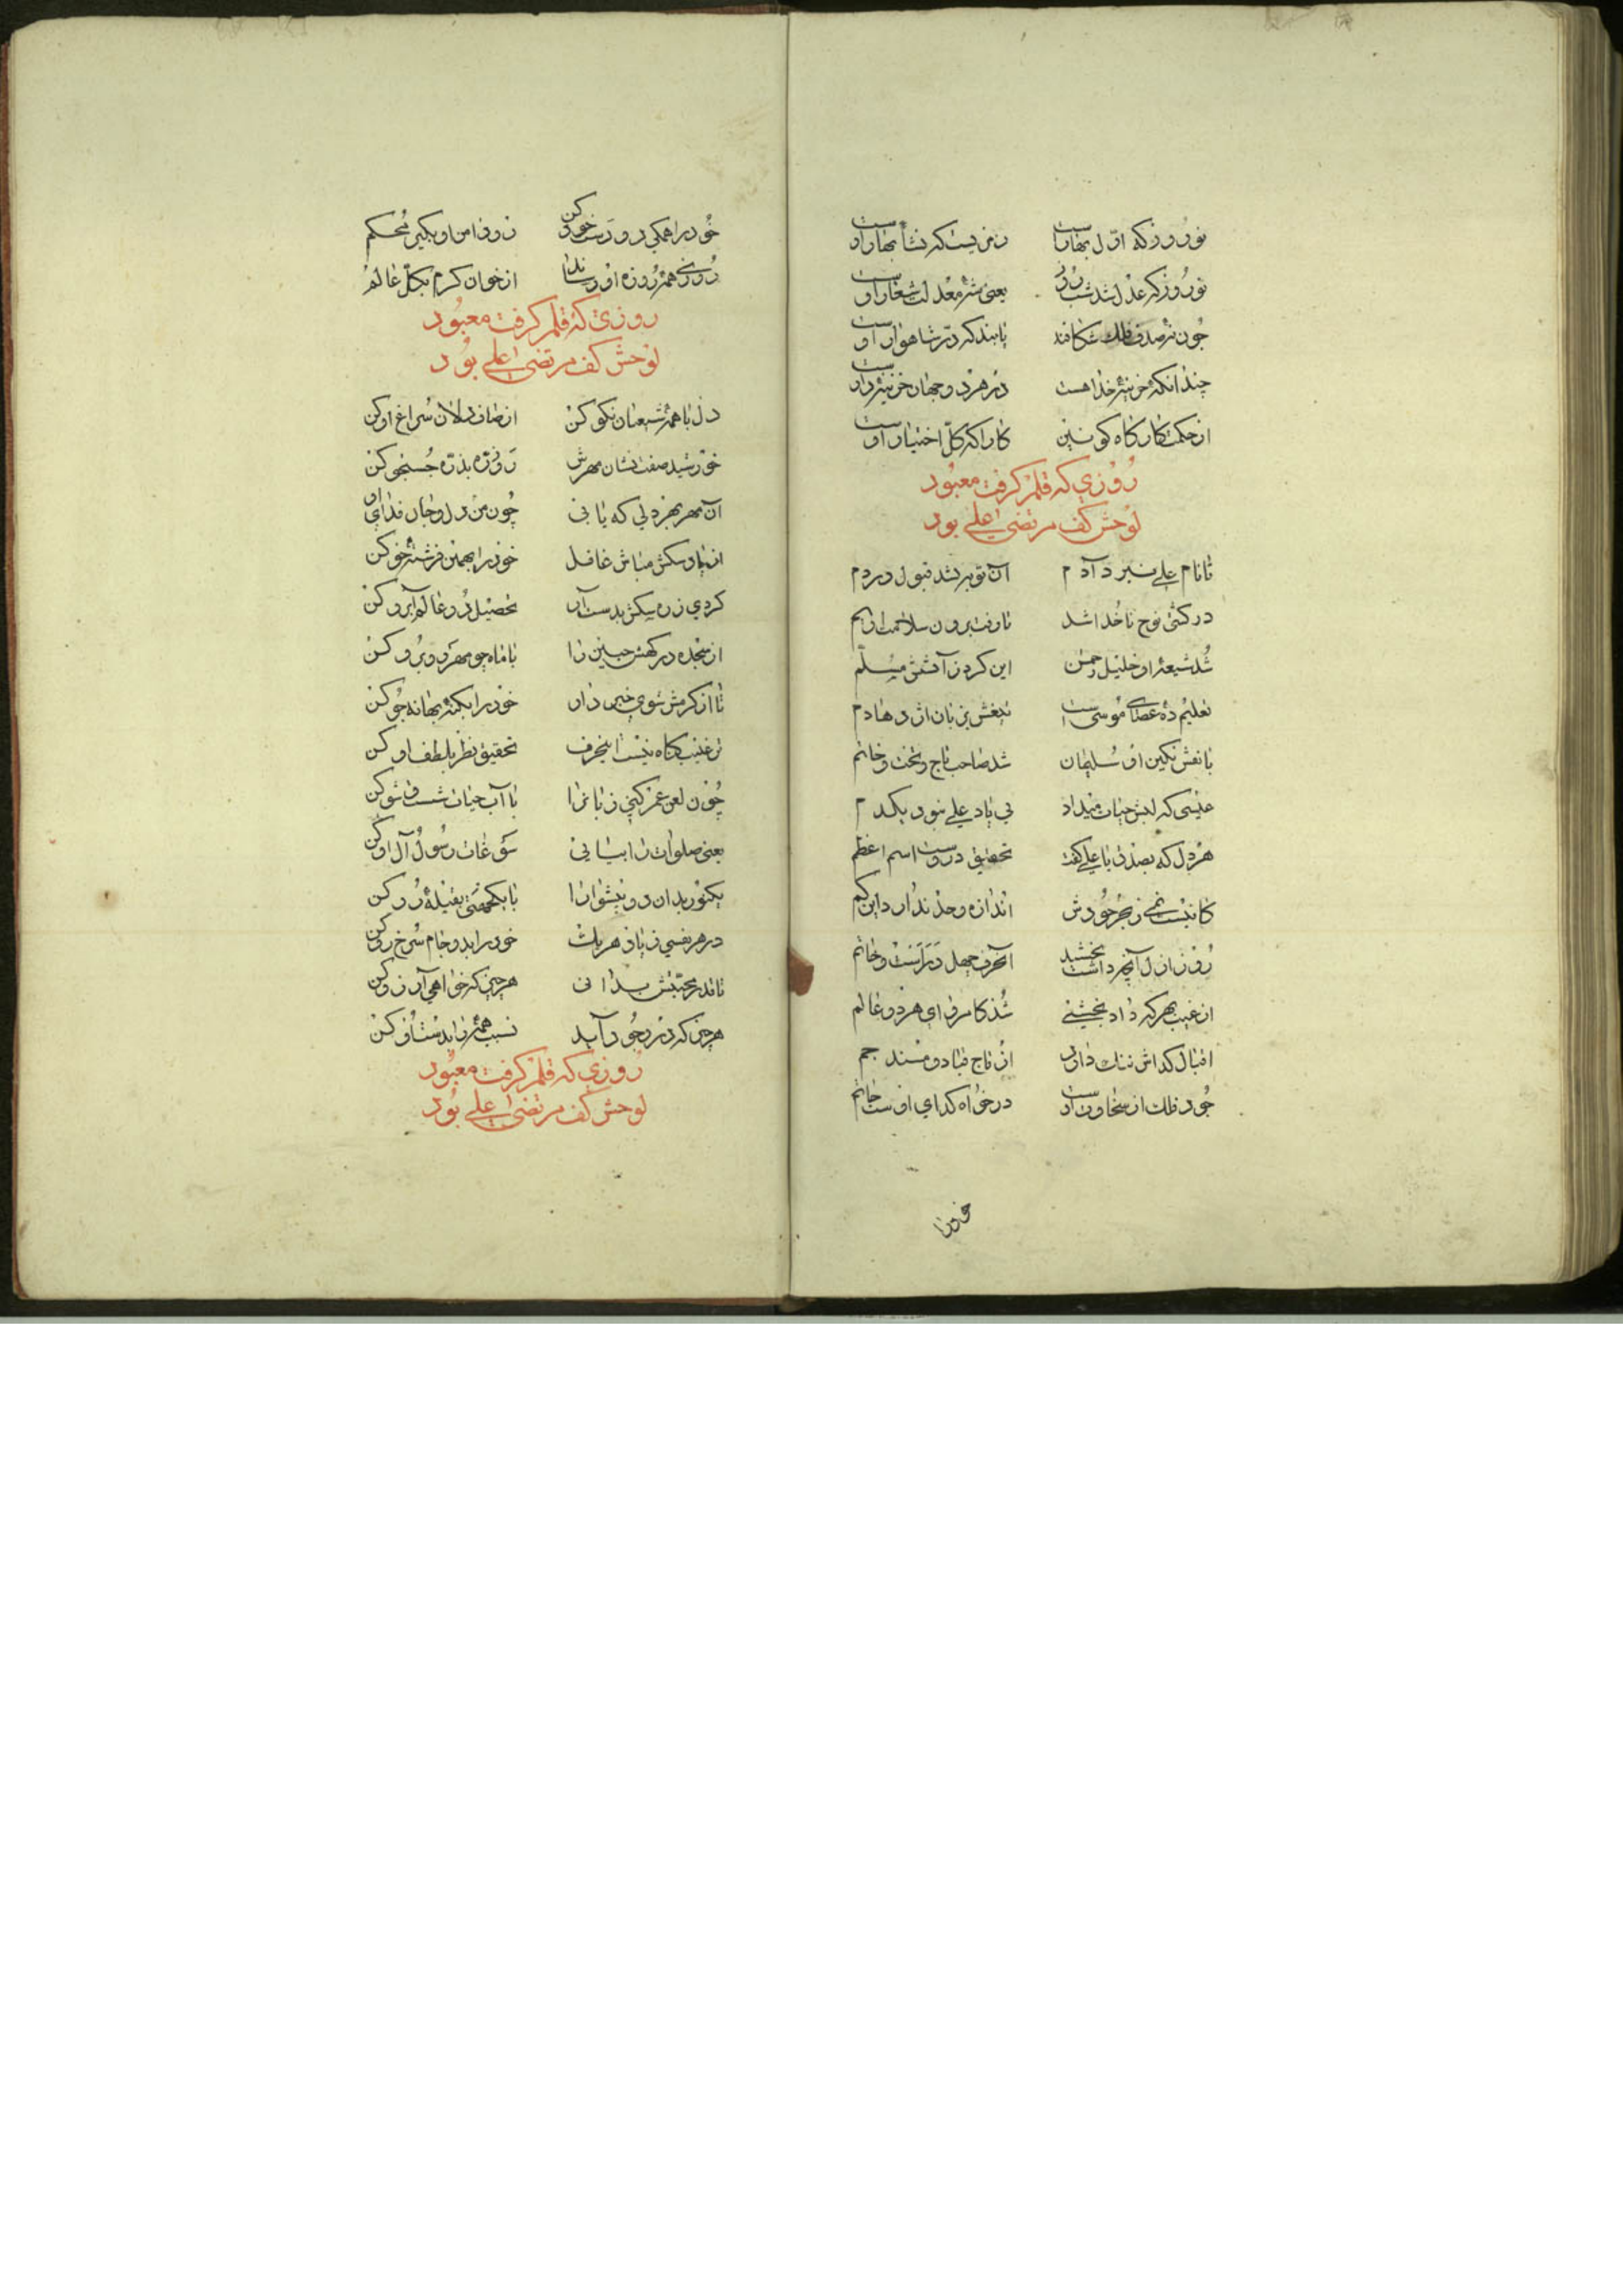 نوروز که اول بهارست رمزیست که نشأ بهار اوست
نوروز که عدل شد شب روز یعنی شه معدلت شعار اوست
چون نه صدف فلک شکافند یابند که در شاهوار اوست
چندانکه خزینهٔ خدا هست در هر دو جهان خزینه دار اوست
از حکمت کارگاه کونین کارا که کل اختیار اوست
روزی که قلم گرفت معبود
لوحش کف مرتضی علی بود
تا نام علی نبرد آدم آن توبه نشد قبول در دم
در کشتی نوح ناخدا شد تا رفت برون سلامت از یم
شد شیعهٔ او خلیل رحمن این کرد ز آتشش مسلم
تعلیم ده عصای موسی است تیغش بزبان اژدها دم
با نقش نگین او سلیمان شد صاحب تاج و تخت و خاتم
عیسی که لبش حیات میداد بی یاد علی نبود یکدم
هر دل که بصدق یا علی گفت تحقیق دروست اسم اعظم
کانیست نمی ز بحر جودش اندازه و حد ندارد این کم
روز ازل آنچه داشت بخشید آنحرف چهل
از غیب بهر که داد بخششی شد کامروای هر دو عالم
اقبال گداش ننگ دارد از تاج قباد و مسند جم
جود فلک از سخاوت اوست در خواه گدای اوست حاتم
خود را
خود را همگی درو درست خو کن زود دامن او بگیر محکم
روزی همه روزه او رساند از خوان کرم بکل عالم
روزی که قلم گرفت معبود
لوحش کف مرتضی علی بود
دل با همه شیعیان نکو کن از صاف دلان سراغ او کن
خورشید صفت نشان مهرش رو ذره بذره جستجو کن
آن مهر بهر دلی که یابی چون من دل و جان فدای او کن
از یاد سگش مباش غافل خود را بهمین فرشته خو کن
کردی ز ره سگش بدست آر تحصیل دو عالم آبرو کن
از سجده در گهش جبین را با ماه چو مهر روبرو کن
تا از کرمش شوی خبر دار خود را بکنه بهانه جو کن
ترغیب گناه نیست اینحرف تحقیق نظر بلطف او کن
چون لعن عمر کنی زبانرا با آب حیات شست و شو کن
یعنی صلوات را بیابی سوغات رسول آل او کن
در هر نفسی ز یاد هر یک خود را بدو جام سرخ رو کن
تا قدر محبتش بدانی هر چیز که خواهی آرزو کن
هر چیز که در وجود آید نسبت همه را بدست او کن
روزی که قلم گرفت معبود
لوحش کف مرتضی علی بود